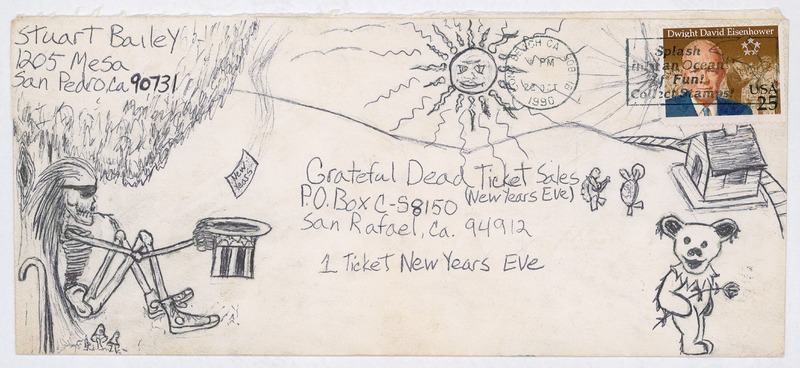 Stuart Bailey
1205 Mesa
San Pedro, ca 90731
BEACH CA
PM
1990
Splash
in an Ocean
of Fun!
Collect Stamps!
Dwight David Eisenhower
USA
25
New
Years
Grateful Dead Ticket Sales
(New Years Eve)
P.O. Box C-S8150
San Rafael, Ca. 94912
1 Ticket New Years Eve